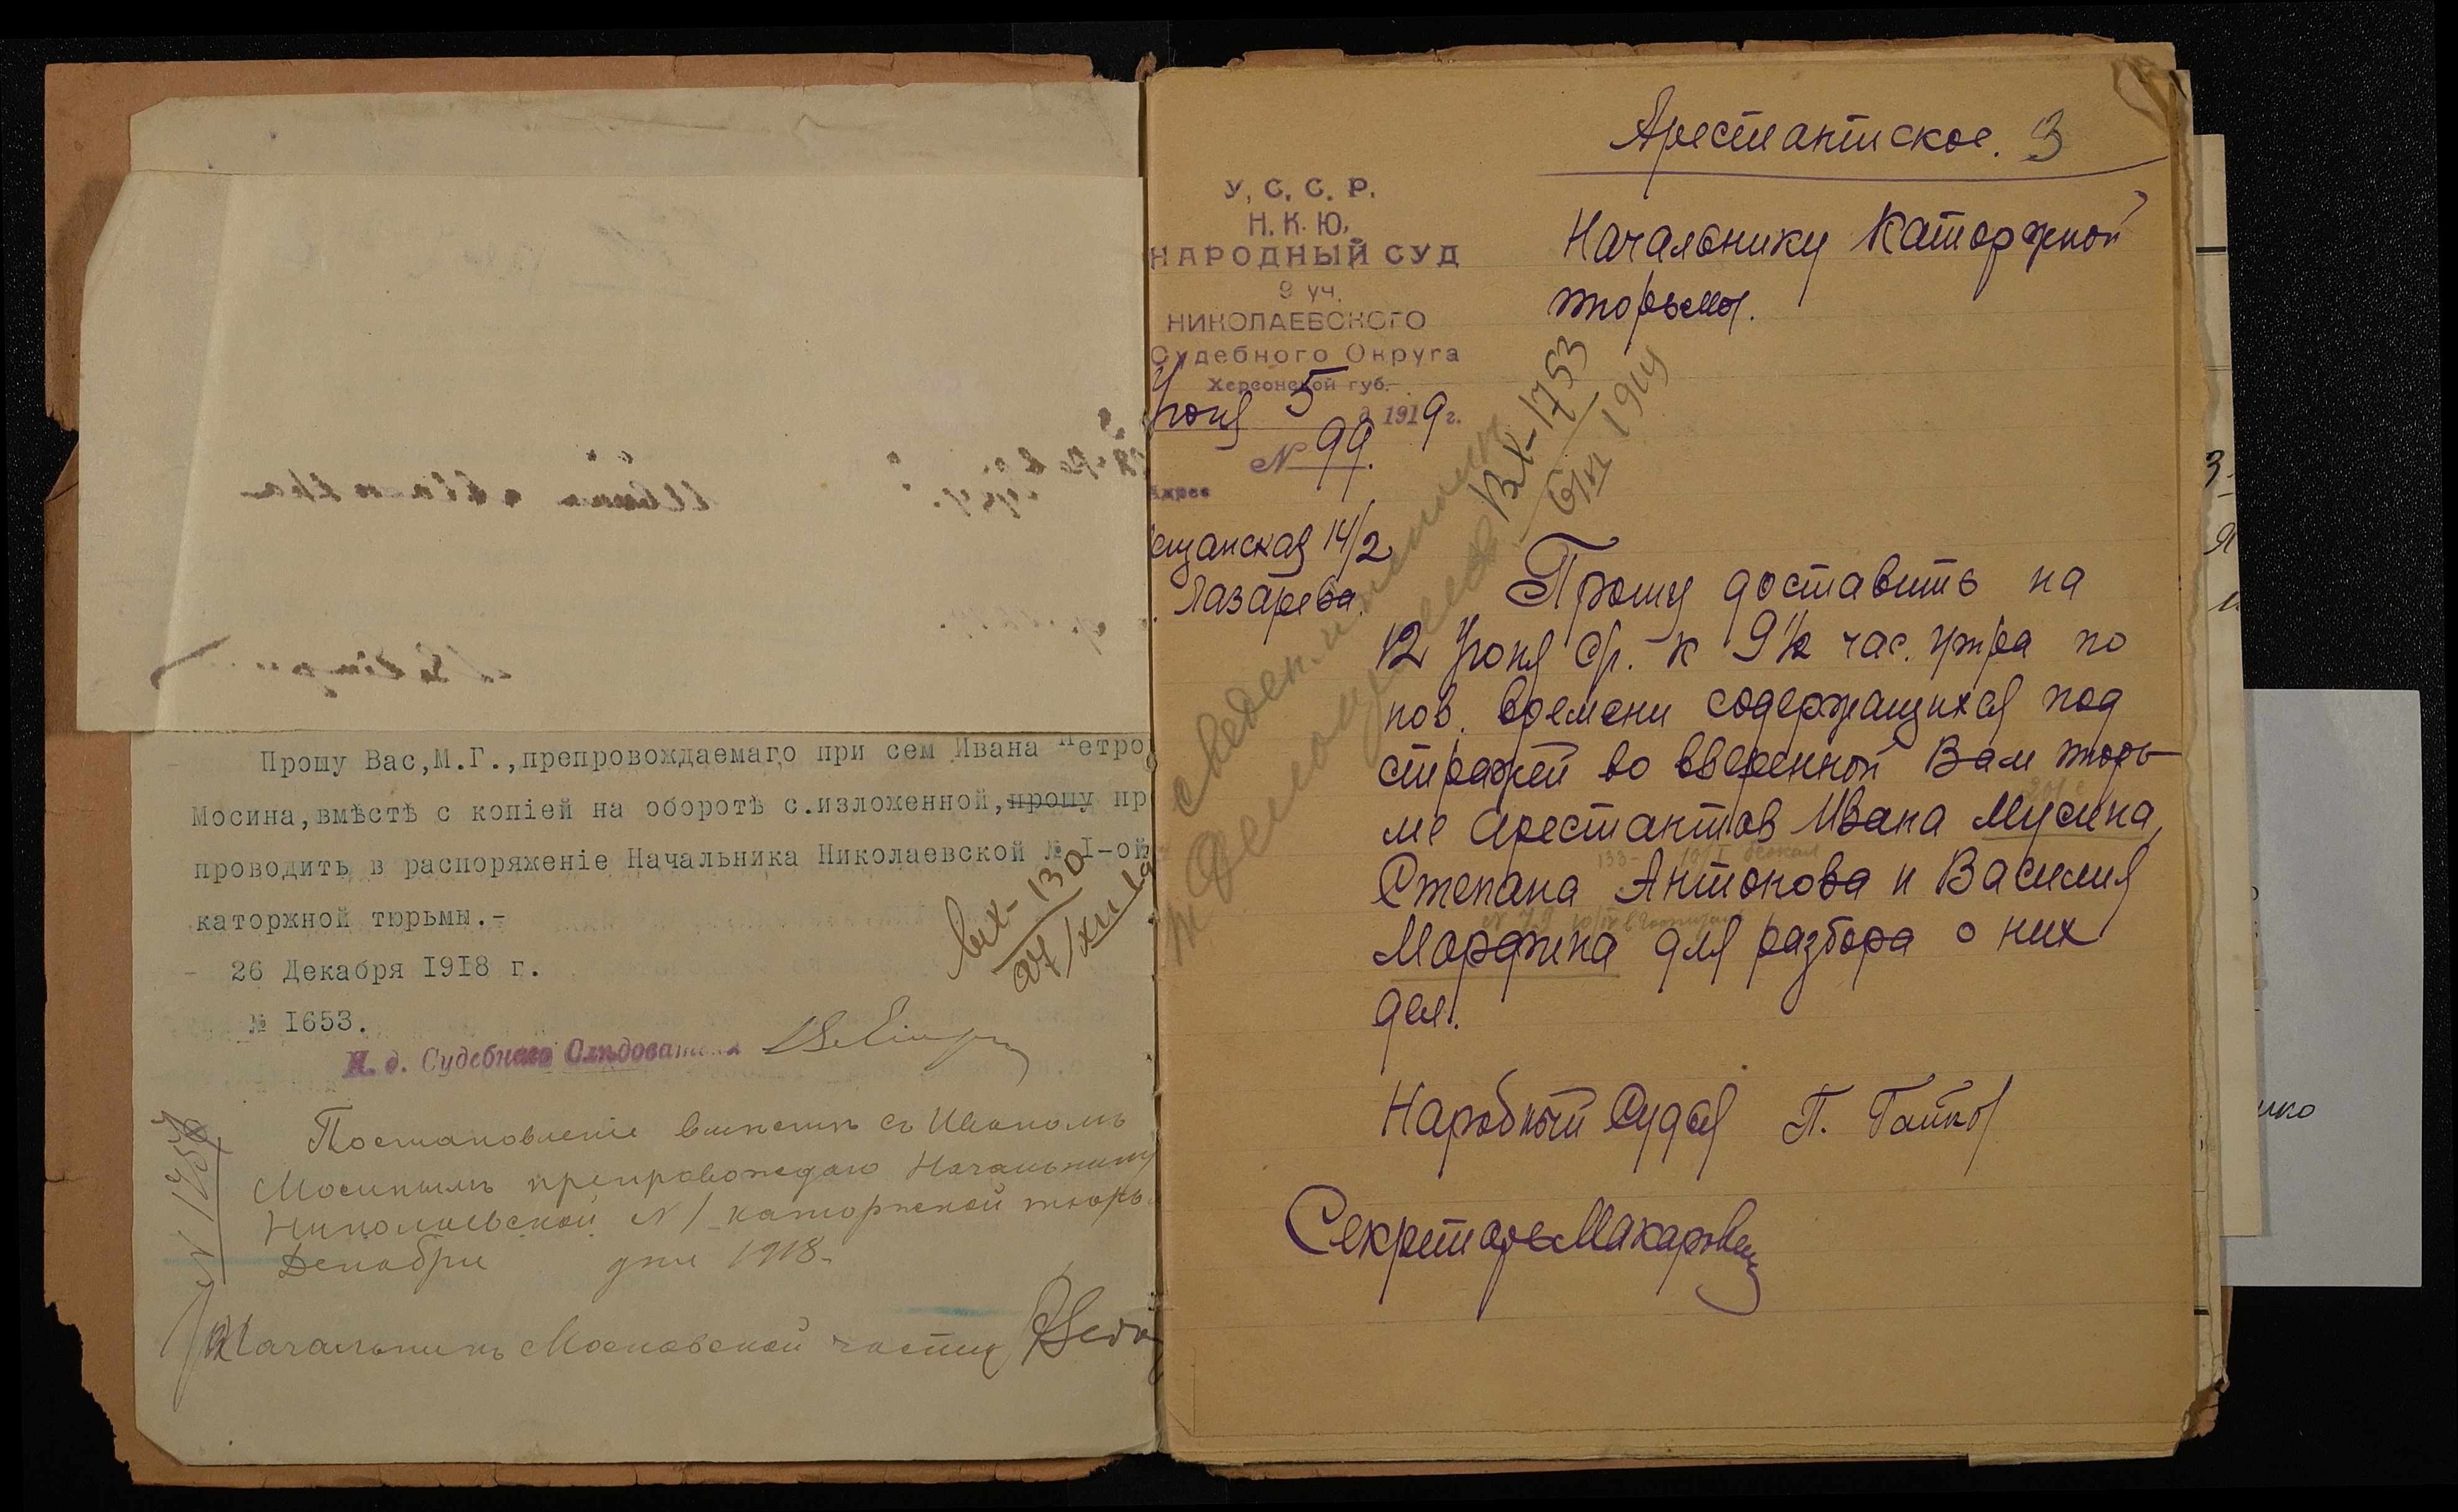 Прошу Вас,М.Г.,препровождаемаго при сем Ивана Петро
Мосина,вмѣстѣ с копіей на оборотѣ с.изложенной,прошу пр
проводить в распоряженіе Начальника Николаевской № I-ой
каторжной тюрьмы.-
26 Декабря I9I8 г.
№ I653.
вх-130
27/XII
И. д. Судебнаго Слѣдователя
Постановленіе вмѣстѣ съ Иваномъ
Мосинымъ препровождаю Начальнику
Николаевской N 1 каторжной тюрь
Декабря дня 1918.
Начальникъ Московской части
N 1257
Арестантское. 3
У. С. С. Р.
Н. К. Ю.
НАРОДНЫЙ СУД
9 уч.
НИКОЛАЕВСКОГО
Судебного Округа
Херсонской губ.
Июня 5 д 1919 г.
№ 99.
Адрес
ещанская 14/2
Лазарева.
Начальнику Каторжной
тюрьмы.
Вх-1753
6/VI 1919
Прошу доставить на
12 Июня с/г. к 9 1/2 час. утра по
нов. времени содержащихся под
стражей во вверенной Вам тюрь
ме арестантов Ивана Мусина,
Степана Антонова и Василия
Морджена для разбора о них
дел.
Народный Судья П. Гайко
Секретарь Макаровец